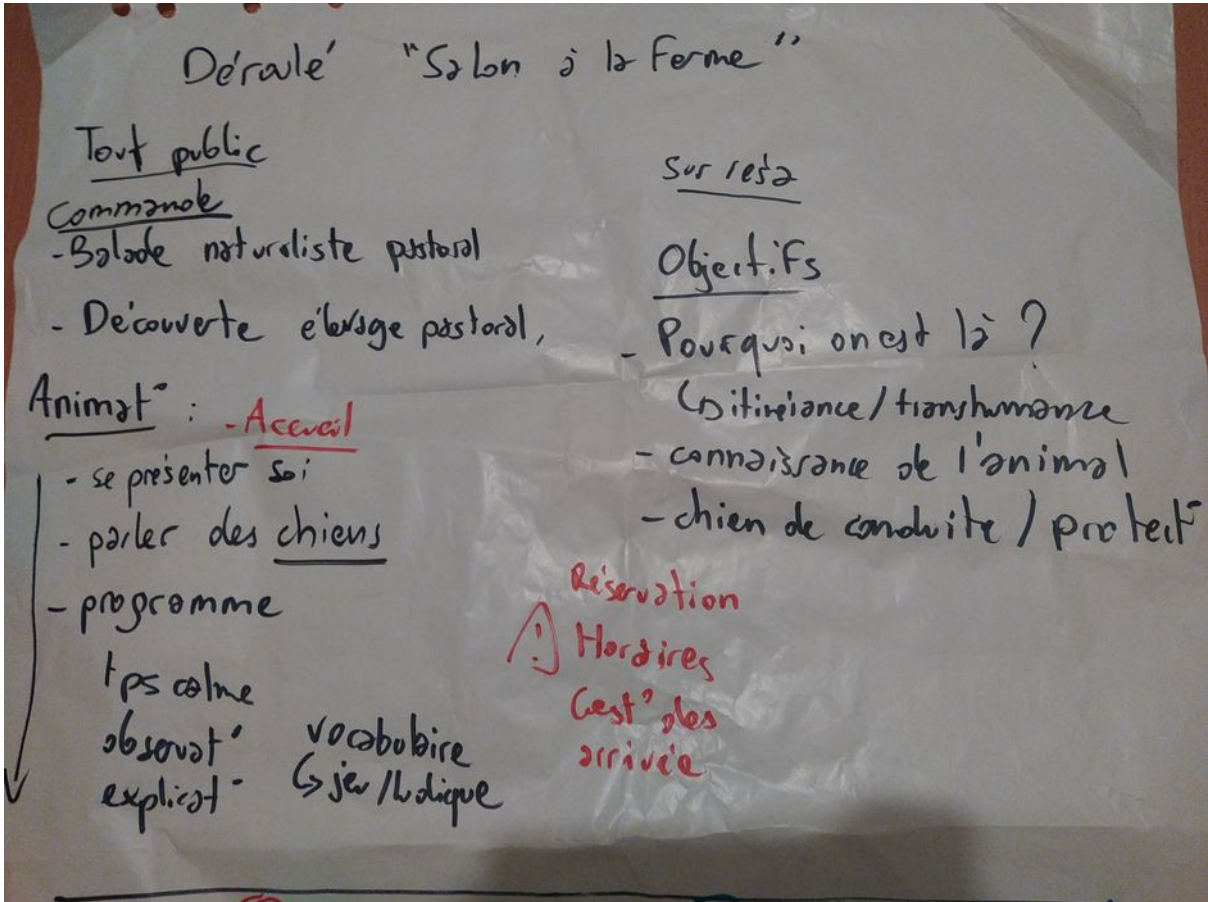 Déroulé "Salon à la Ferme"
Tout public
Commande
- Balade naturaliste pastoral
- Découverte élevage pastoral,
Animat° : - Accueil
- se présenter soi
- parler des chiens
- programme
tps calme
observat°
explicat°
vocabulaire
↳ jeu/ludique
sur resa
Objectifs
- Pourquoi on est là ?
↳ itinérance/transhumance
- connaissance de l'animal
- chien de conduite / protect°
⚠ Réservation
Horaires
Gest° des
arrivée